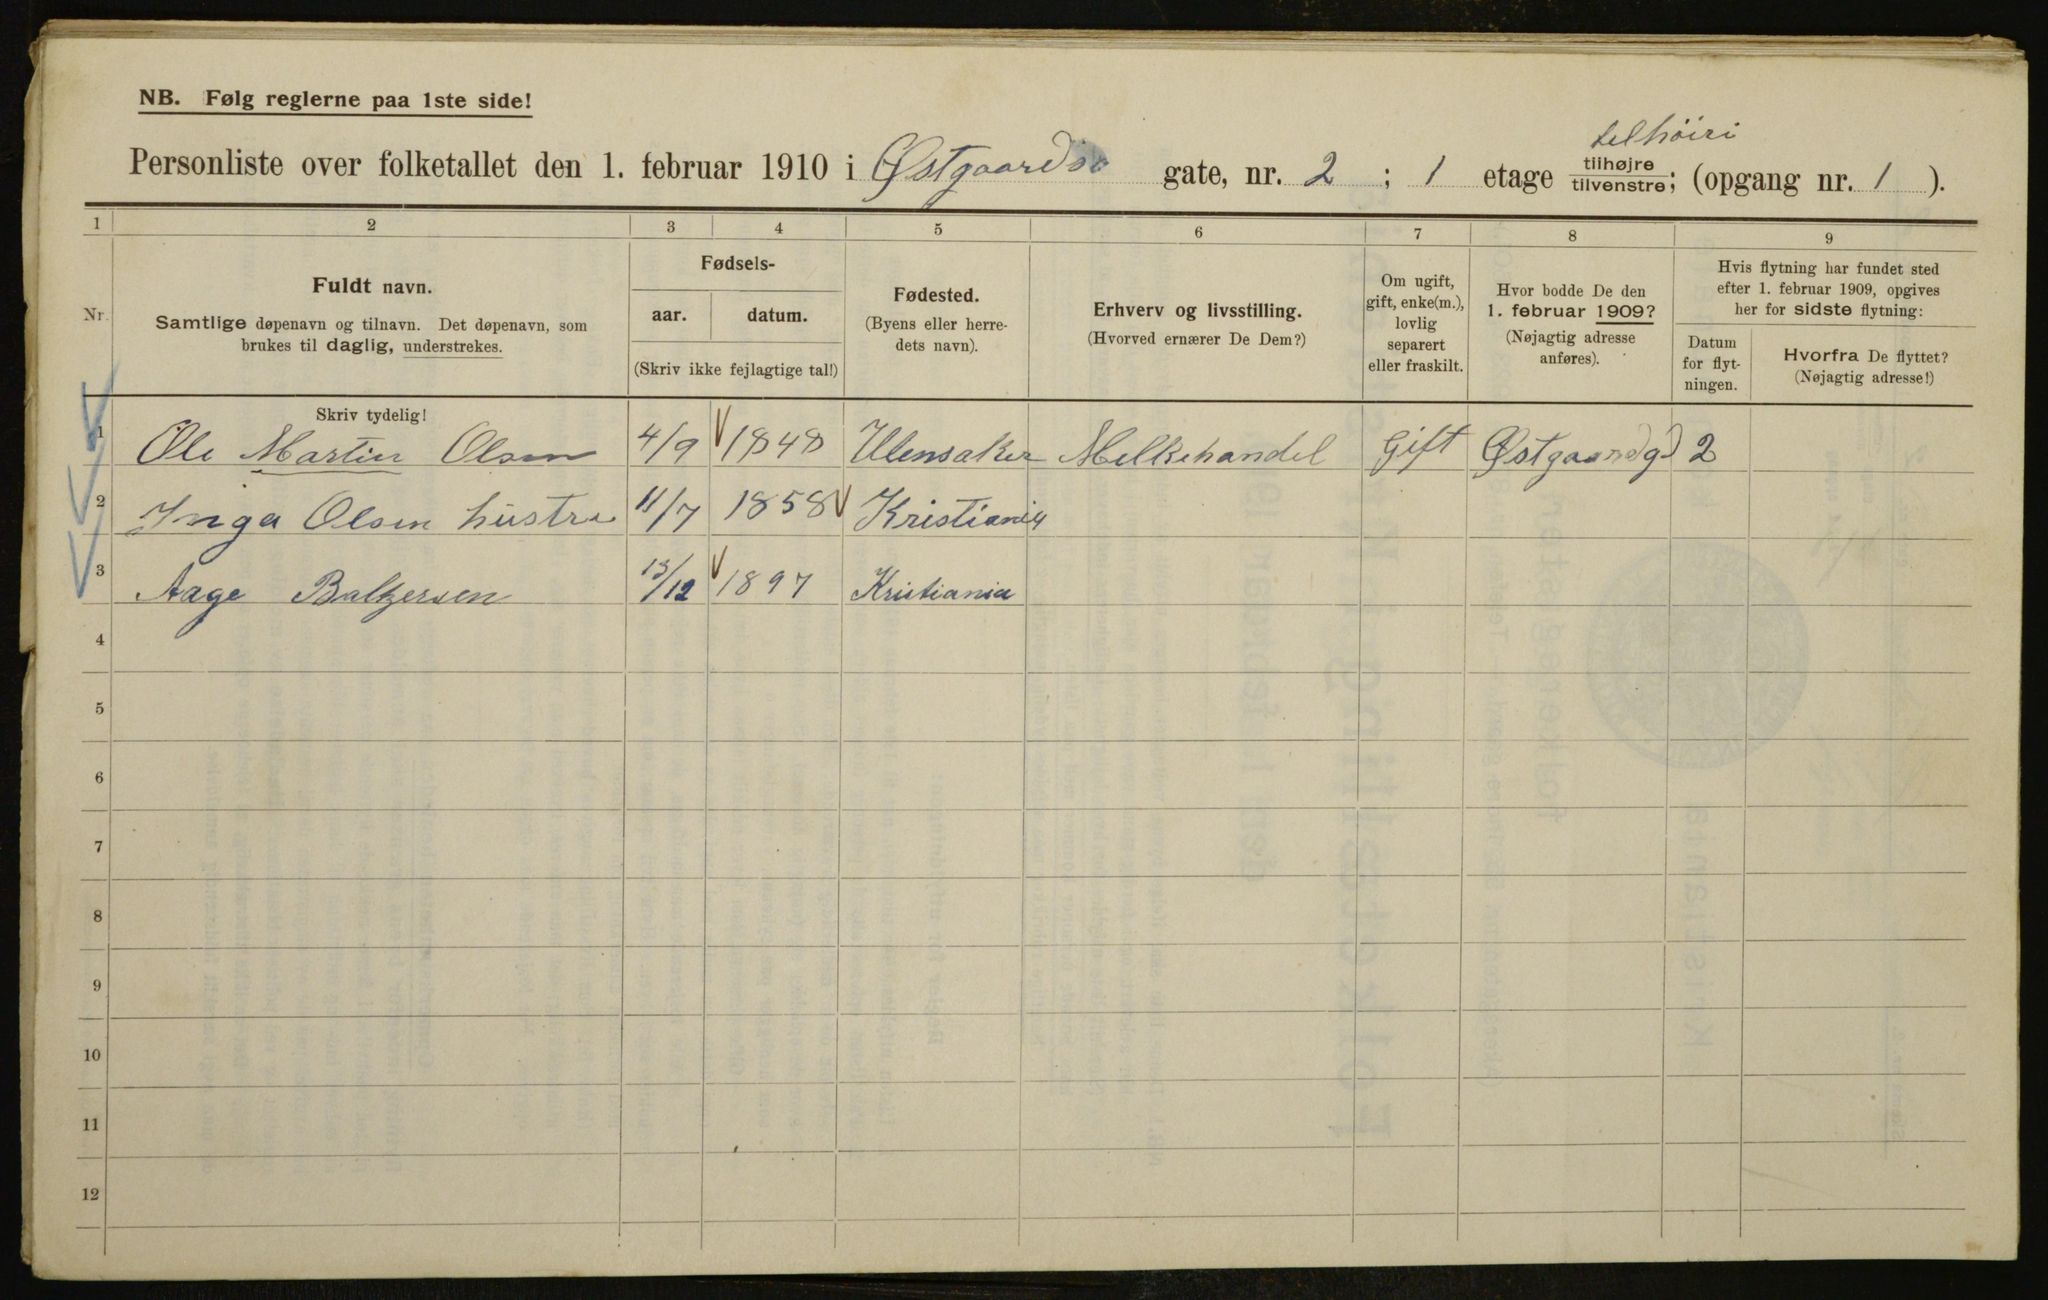 NB. Følg reglerne paa 1ste side!
telhöiri
Personliste over folketallet den 1. februar 1910 i Østgaards gate, nr. 2 ; 1 etage tilhøjre/tilvenstre; (opgang nr. 1 ).
1 2 3 4 5 6 7 8 9
Nr.
Fuldt navn.
Samtlige døpenavn og tilnavn. Det døpenavn, som
brukes til daglig, understrekes.
Fødsels-
aar. datum.
(Skriv ikke fejlagtige tal!)
Fødested.
(Byens eller herre-
dets navn).
Erhverv og livsstilling.
(Hvorved ernærer De Dem?)
Om ugift,
gift, enke(m.),
lovlig
separert
eller fraskilt.
Hvor bodde De den
1. februar 1909?
(Nøjagtig adresse
anføres).
Hvis flytning har fundet sted
efter 1. februar 1909, opgives
her for sidste flytning:
Datum
for flyt-
ningen.
Hvorfra De flyttet?
(Nøjagtig adresse!)
Skriv tydelig!
1 Ole Martin Olsen 4/9 1848 Ulensaker Melkehandel Gift Østgaardgd 2
2 Inga Olsen hustru 11/7 1858 Kristiania
3 Aage Balkersen 13/12 1897 Kristiania
4
5
6
7
8
9
10
11
12